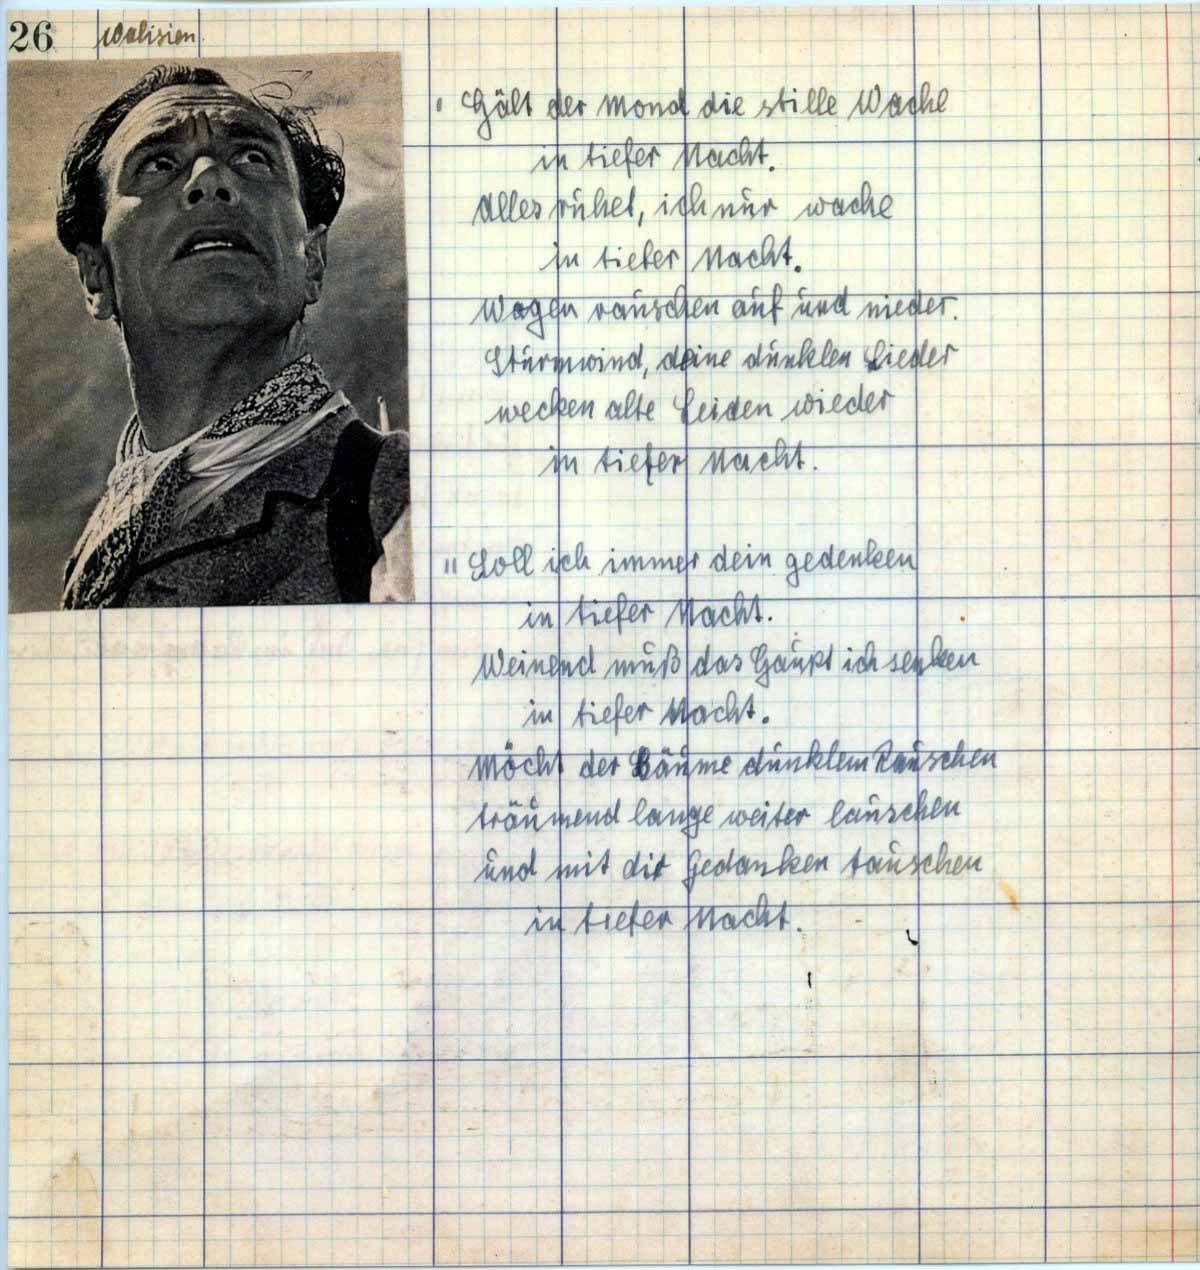 26 Walisien
" Hält der Mond die stille Wache
in tiefer Nacht.
Alles ruhet, ich nur wache
in tiefer Nacht.
Wogen rauschen auf und nieder.
Sturmwind, deine dunklen Lieder
wecken alte Leiden wieder
in tiefer Nacht.
" Soll ich immer dein gedenken
in tiefer Nacht.
Weinend muß das Haupt ich senken
in tiefer Nacht.
Möcht der Bäume dunklem Rauschen
träumend lange weiter lauschen
und mit dir Gedanken tauschen
in tiefer Nacht.